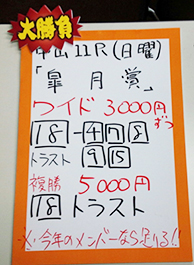 大勝負
中山11R(日曜)
「皐月賞」
ワイド 3000円ずつ
18-4 7 8
トラスト 9 15
複勝 5000円
18 トラスト
※今年のメンバーなら足りる!